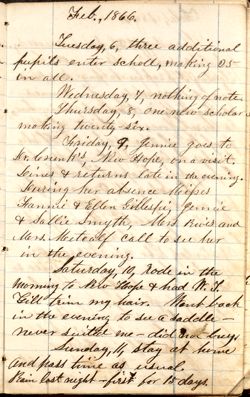 Feb., 1866.
Tuesday, 6, three additional
pupils enter scholl, making 25
in all.
Wednesday, 7, nothing of note
Thursday, 8, one new scholar
making twenty-six.
Friday, 9, Jennie goes to
New Hope, on a visit.
& returns late in the evening.
During her absence Misses
Fannie & Ellen Gillespie, Jennie
& Sallie Smyth, Mrs. and
Mrs. Metcalf call to see her
in the evening.
Saturday, 10, rode in the
morning to New Hope & had W. T.
Gill trim my hair. Went back
in the evening to see a saddle -
never suited me - did not buy.
Sunday, 11, stay at home
and pass time as usual.
Rain last night - first for 15 days.